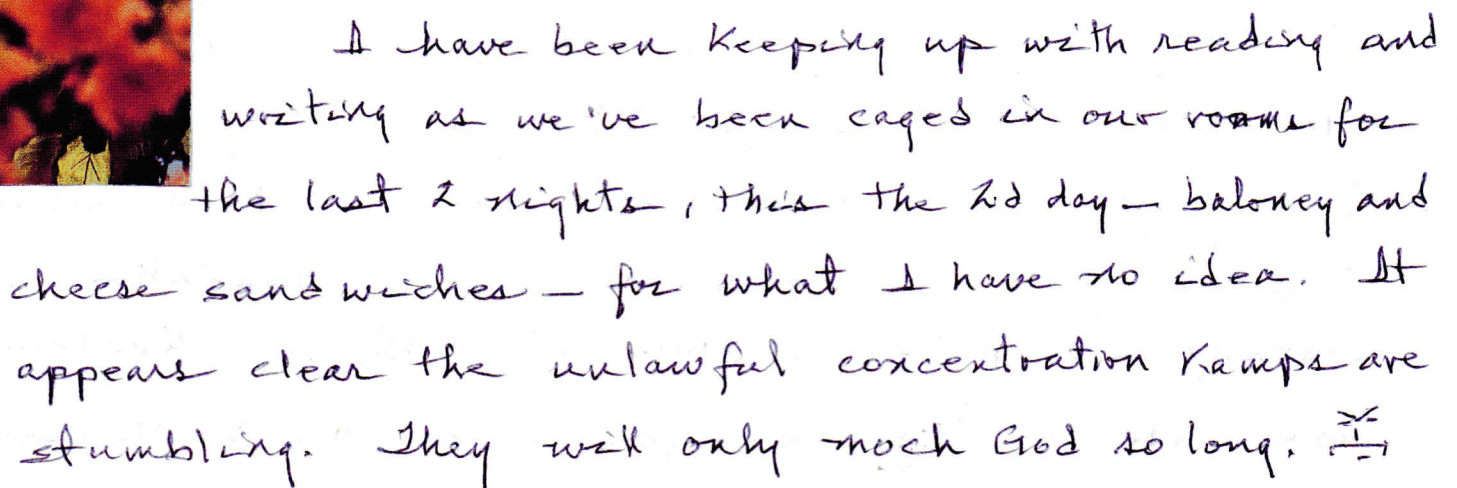 I have been keeping up with reading and
writing as we've been caged in our rooms for
the last 2 nights, this the 2d day — baloney and
cheese sandwiches — for what I have no idea. It
appears clear the unlawful concentration kamps are
stumbling. They will only moch God so long.